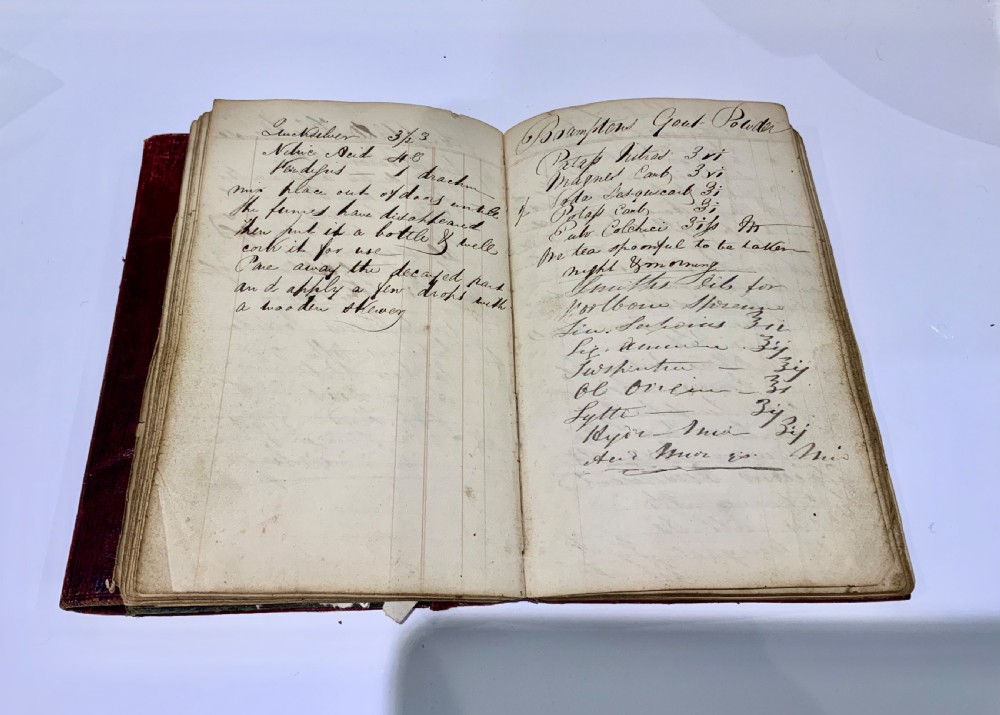 Quicksilver
Nitric Acid
Verdigris — 1 drachm
mix place out of doors untill
the fumes have disappeared
then put it a bottle & well
cork it for use
Pare away the decayed part
and apply a few drops with
a wooden skewer
Bramptons Gout Powder
Potass Nitras ʒvi
Magnes Carb ʒvi
Soda Sesquicarb ʒi
Potass Carb ʒi
Pulv Colchici ʒiſs
One tea spoonful to be taken
night & morning
Smiths for
Lin. Saponis
Liq. Ammon ʒij
Turpentine — ʒij
Ol
Lytta — ʒij
Hydr — ʒij
Acid